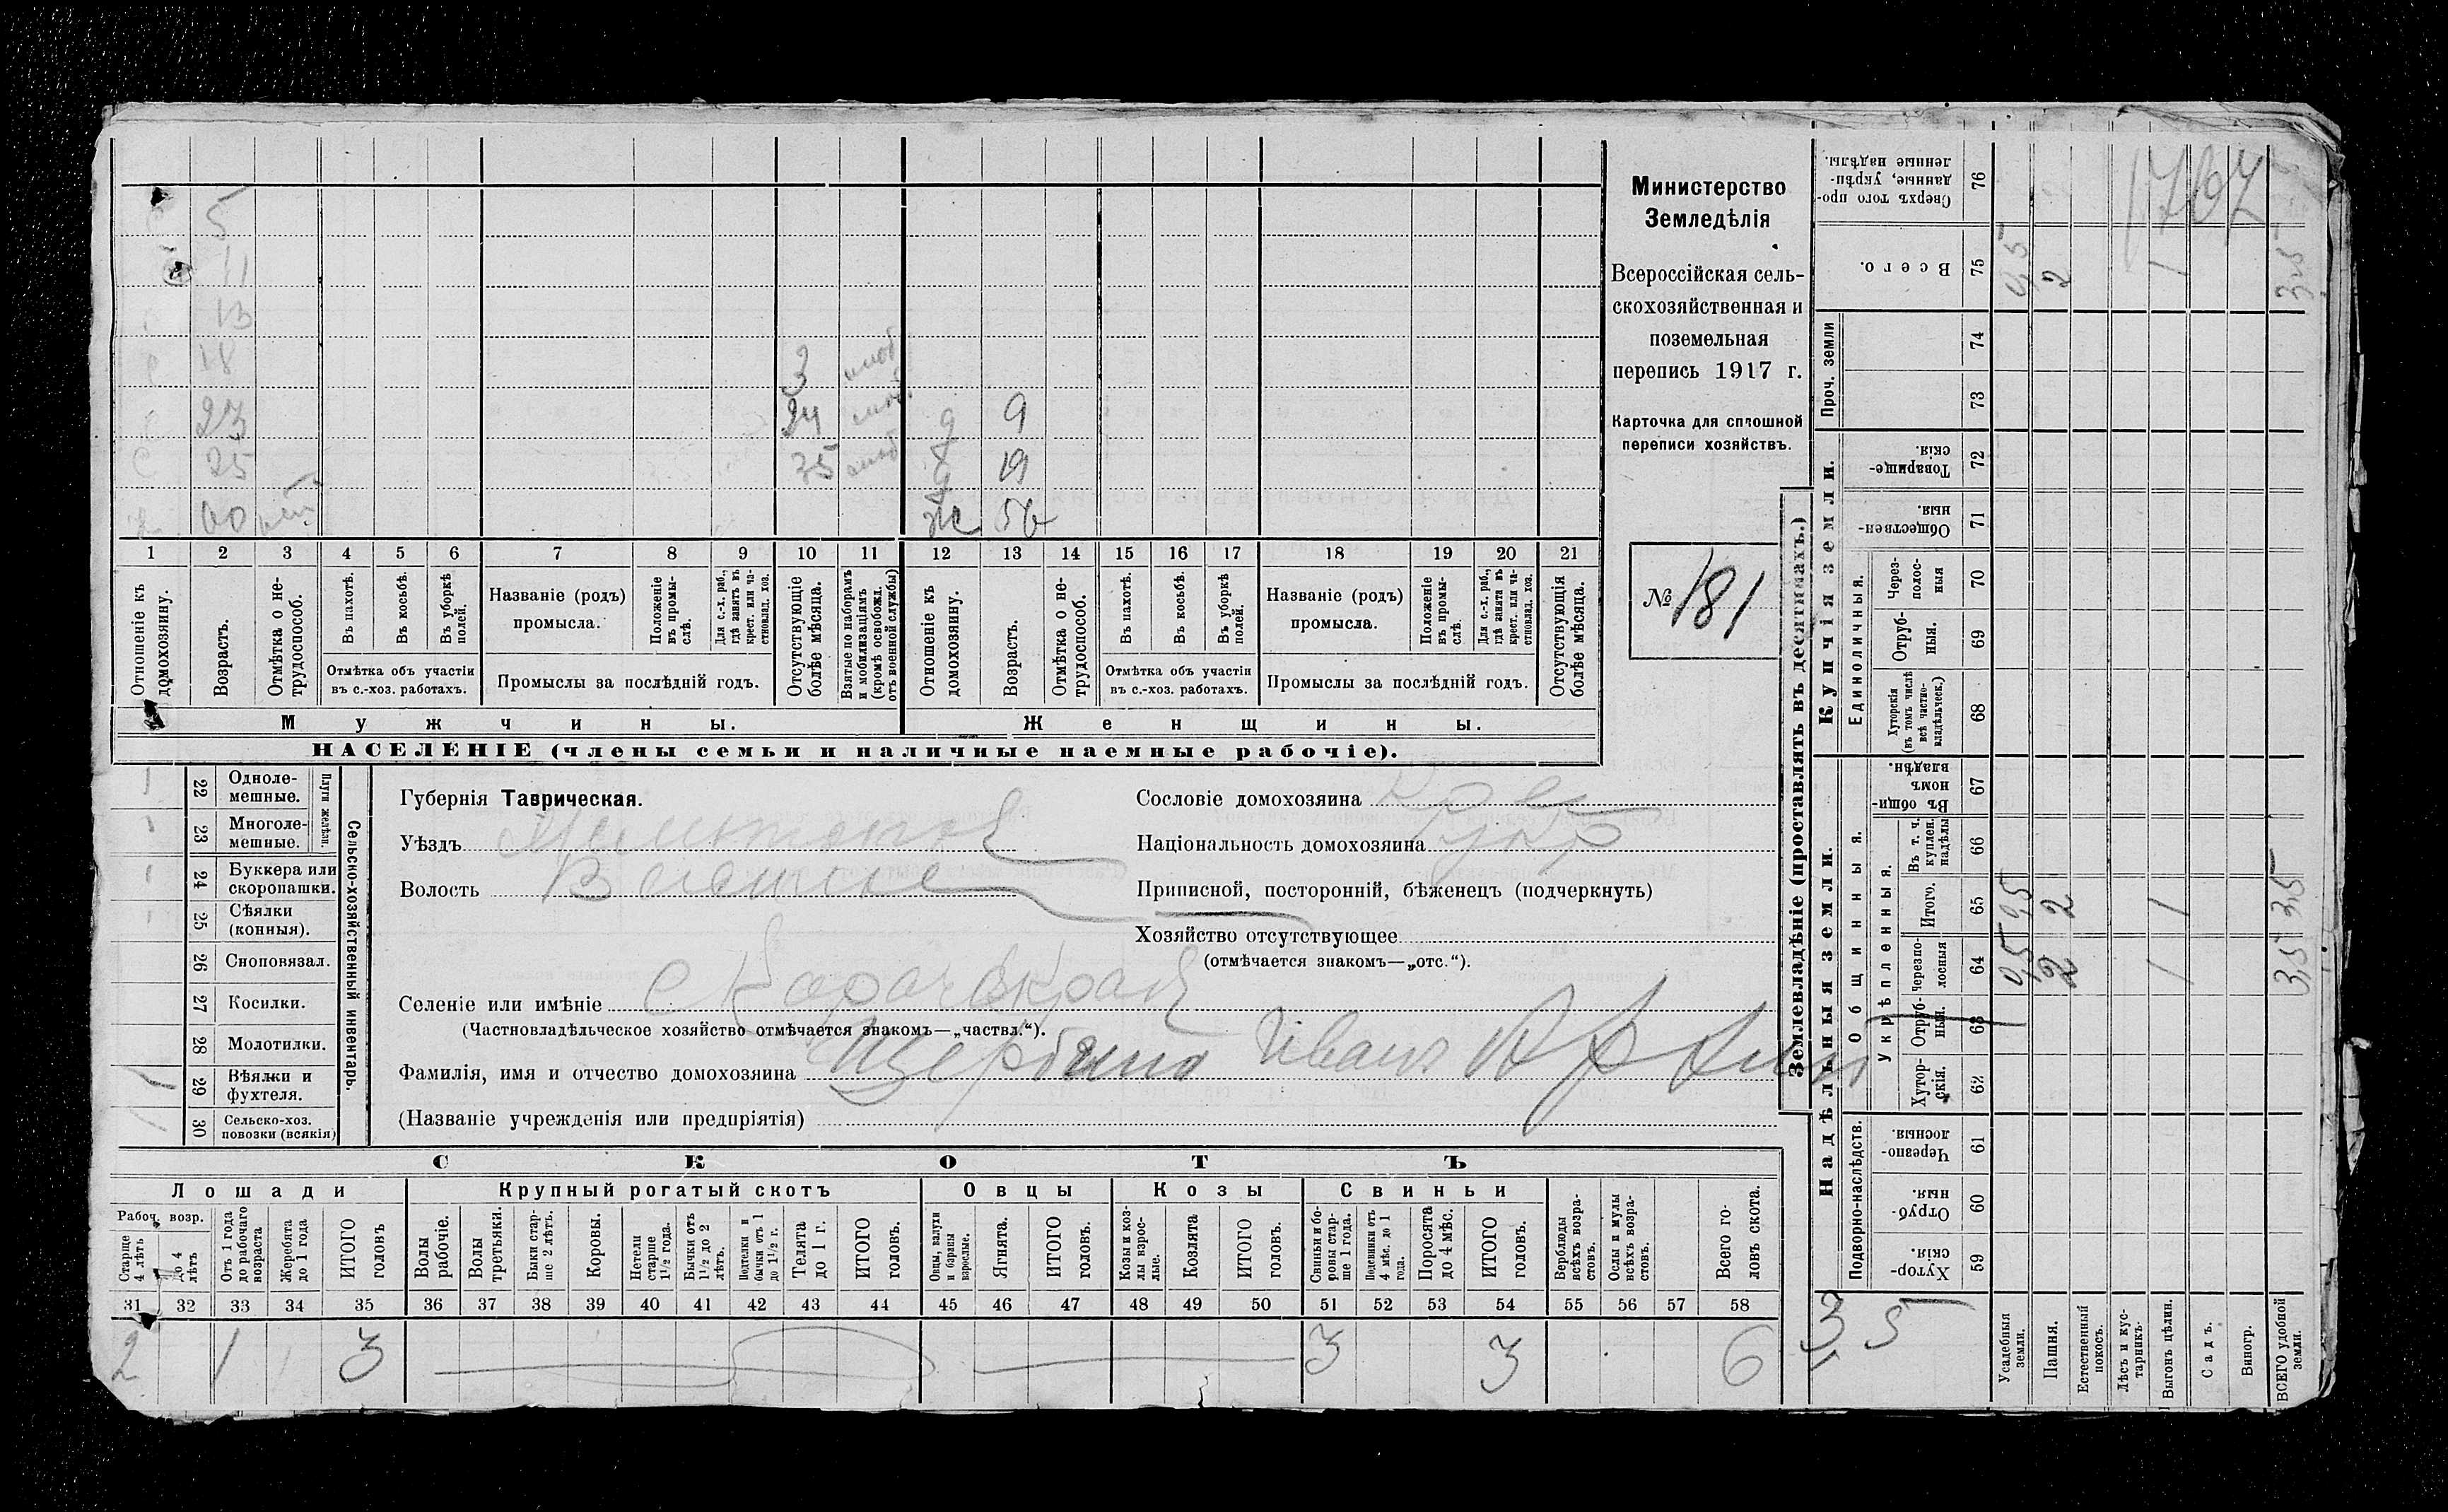 5
11
13
18 3 моб
23 24 моб. д 9
с 25 35 моб д 19
х 60 ж 56
1 2 3 4 5 6 7 8 9 10 11 12 13 14 15 16 17 18 19 20 21
Отношеніе къ домохозяину.
Возрастъ.
Отмѣтка о нетрудоспособ.
Въ пахотѣ.
Въ косьбѣ.
Въ уборкѣ полей.
Отмѣтка объ участіи
въ с.-хоз. работахъ.
Названіе (родъ)
промысла.
Положеніе въ промыслѣ.
Для с.-х. раб., гдѣ занятъ въ крест. или частновлад. хоз.
Промыслы за послѣдній годъ.
Отсутствующіе болѣе мѣсяца.
Взятые по наборамъ и мобилизаціямъ (кромѣ освобожд. отъ военной службы)
Отношеніе къ домохозяину.
Возрастъ.
Отмѣтка о нетрудоспособ.
Въ пахотѣ.
Въ косьбѣ.
Въ уборкѣ полей.
Отмѣтка объ участіи
въ с.-хоз. работахъ.
Названіе (родъ)
промысла.
Положеніе въ промыслѣ.
Для с.-х. раб., гдѣ занята въ крест. или частновлад. хоз.
Промыслы за послѣдній годъ.
Отсутствующія болѣе мѣсяца.
Мужчины.
Женщины.
НАСЕЛЕНІЕ (члены семьи и наличные наемные рабочіе).
Министерство
Земледѣлія
Всероссійская сель-
скохозяйственная и
поземельная
перепись 1917 г.
Карточка для сплошной
переписи хозяйствъ.
№ 181
Сельско-хозяйственный инвентарь.
Плуги желѣзн.
22 Одноле-
мешные.
23 Многоле-
мешные.
24 Буккера или
скоропашки.
25 Сѣялки
(конныя).
26 Сноповязал.
27 Косилки.
28 Молотилки.
29 Вѣялки и
фухтеля.
30 Сельско-хоз.
повозки (всякія)
Губернія Таврическая.
Уѣздъ Мелитопол
Волость
Селеніе или имѣніе с
(Частновладѣльческое хозяйство отмѣчается знакомъ—„частвл.“).
Фамилія, имя и отчество домохозяина Щербина Иванъ
(Названіе учрежденія или предпріятія)
Сословіе домохозяина
Національность домохозяина
Приписной, посторонній, бѣженецъ (подчеркнуть)
Хозяйство отсутствующее
(отмѣчается знакомъ—„отс.“).
СКОТЪ
Лошади
Крупный рогатый скотъ
Овцы
Козы
Свиньи
Рабоч. возр.
Старше 4 лѣтъ
До 4 лѣтъ
Отъ 1 года до рабочаго возраста
Жеребята до 1 года
ИТОГО головъ
Волы рабочіе.
Волы третьяки.
Быки старше 2 лѣтъ.
Коровы.
Нетели старше 1½ года.
Бычки отъ 1½ до 2 лѣтъ.
Подтелки и бычки отъ 1 до 1½ г.
Телята до 1 г.
ИТОГО головъ.
Овцы, валухи и бараны взрослые.
Ягнята.
ИТОГО головъ.
Козы и козлы взрослые.
Козлята
ИТОГО головъ.
Свиньи и боровы старше 1 года.
Подсвинки отъ 4 мѣс. до 1 года.
Поросята до 4 мѣс.
ИТОГО головъ.
Верблюды всѣхъ возрастовъ.
Ослы и мулы всѣхъ возрастовъ.
Всего головъ скота.
31 32 33 34 35 36 37 38 39 40 41 42 43 44 45 46 47 48 49 50 51 52 53 54 55 56 57 58
2 1 3 3 3 6
Землевладѣніе (проставлять въ десятинахъ.)
Купчія земли.
Надѣльныя земли.
Сверхъ того проданные, укрѣпленные надѣлы. 76
1767
Всего. 75 0,5 2 1 3,5
Проч. земли
74
73
Товарищескія. 72
Общественныя. 71
Единоличныя.
Черезполосныя 70
Отрубныя. 69
Хуторскія (въ томъ числѣ всѣ частновладѣльческ.) 68
Общинныя.
Въ общинномъ владѣн. 67
Укрѣпленныя.
Въ т. ч. куплен. надѣлы 66
Итого. 65 0,5 2 1 3,5
Черезполосныя 64 0,5 2 1 3,5
Отрубныя. 63
Хуторскія. 62
Подворно-наслѣдств.
Черезполосныя. 61
Отрубныя. 60
Хуторскія. 59
3,5
Усадебныя земли.
Пашня.
Естественный покосъ.
Лѣсъ и кустарникъ.
Выгонъ цѣлин.
Садъ.
Виногр.
ВСЕГО удобной земли.